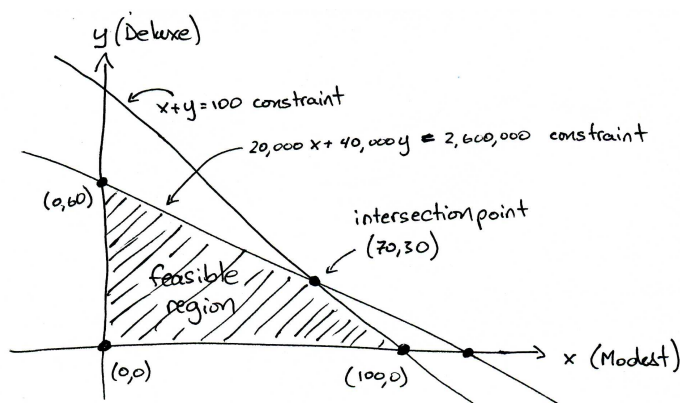 y (Deluxe)
x+y=100 constraint
20,000x + 40,000y = 2,600,000 constraint
(0,60)
intersection point
(70,30)
feasible
region
x (Modest)
(0,0)
(100,0)